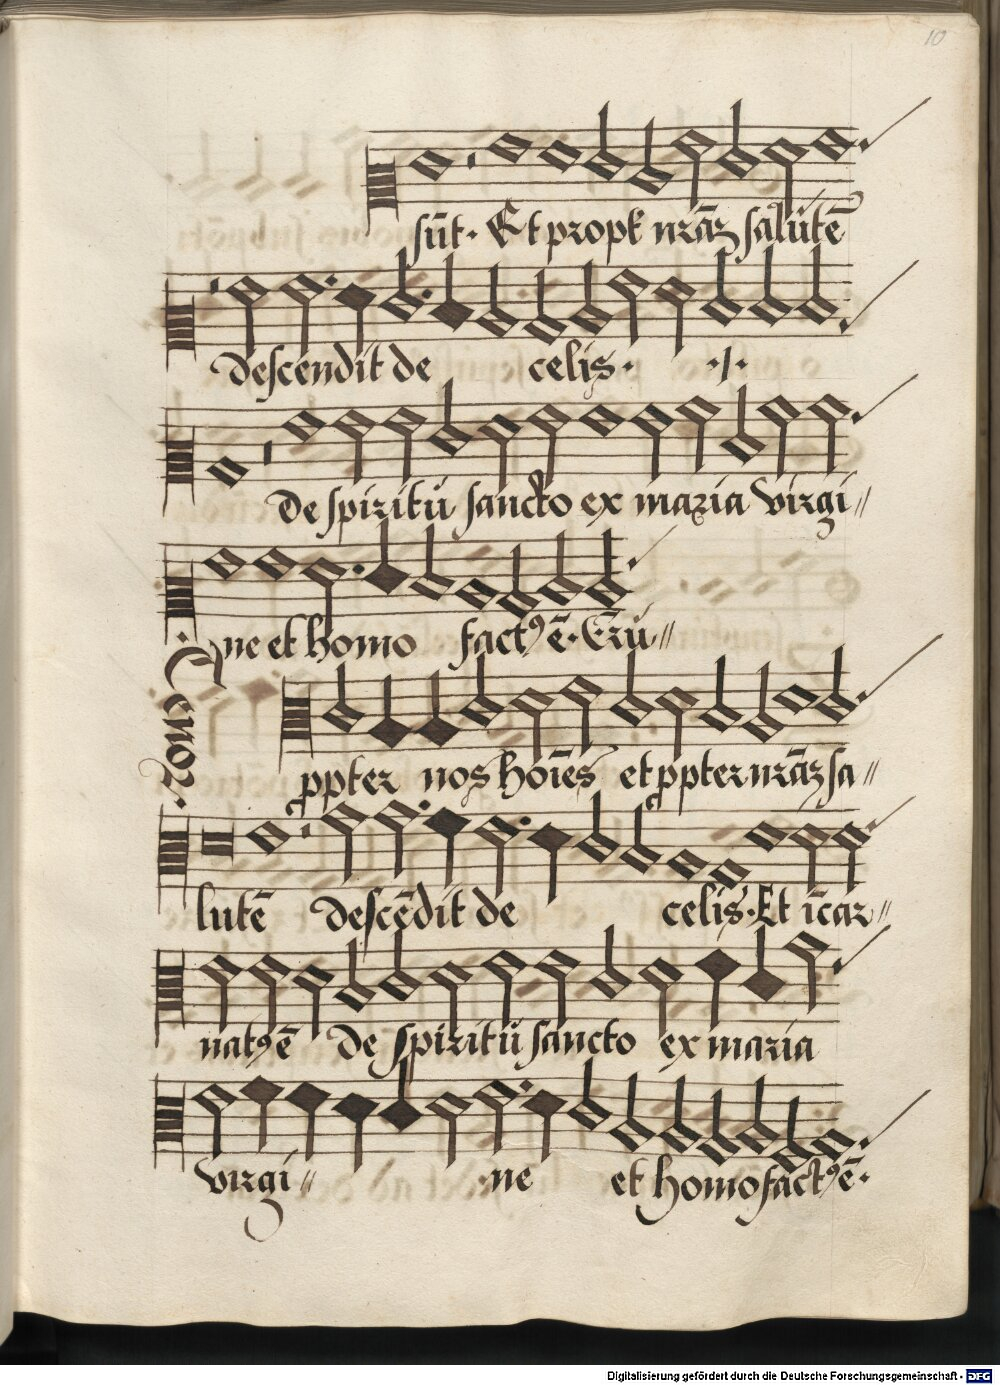 10
sūt. Et propt nrāꝫ salutē
descendit de celis. ./.
De spiritu sancto ex maria virgi//
ne et homo factꝰ ē. Cru//
Tenor.
ꝓpter nos hoīes et ꝓpter nrāꝫ sa//
lutē descēdit de celis. Et īcar//
natꝰ ē De spiritu sancto ex maria
virgi// ne et homo factꝰ ē.
Digitalisierung gefördert durch die Deutsche Forschungsgemeinschaft - DFG